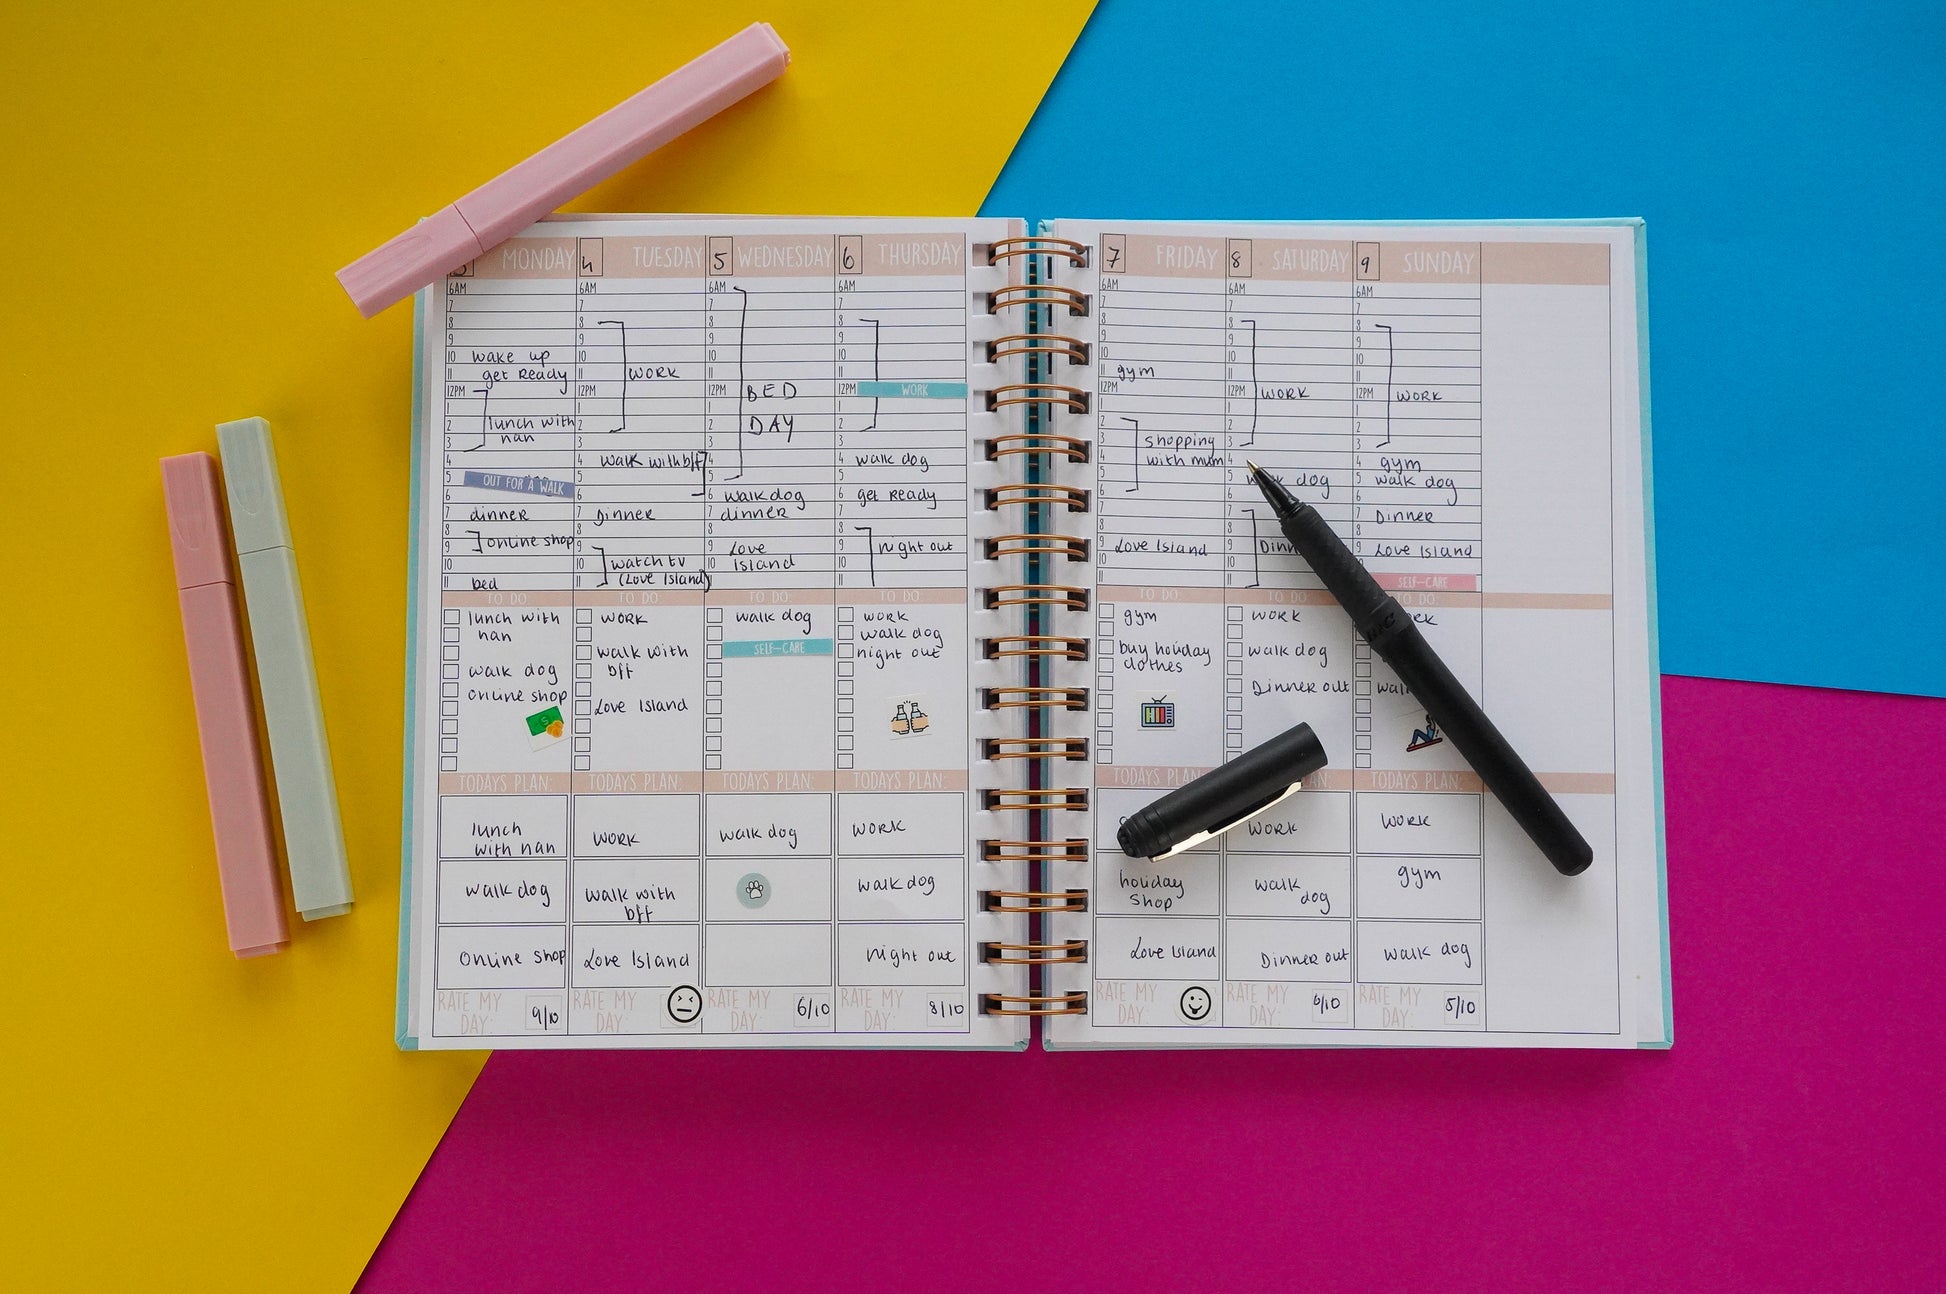 MONDAY
6AM
7
8
9
10 wake up
11 get Ready
12PM
1
2 lunch with
3 nan
4
5 OUT FOR A WALK
6
7 dinner
8
9 online shop
10
11 bed
TO DO:
lunch with
nan
walk dog
online shop
TODAYS PLAN:
lunch
with nan
walk dog
online shop
RATE MY
DAY: 9/10
4 TUESDAY
6AM
7
8
9
10
11 WORK
12PM
1
2
3
4 walk with bff
5
6
7 Dinner
8
9
10 watch tv
11 (Love Island)
TO DO:
WORK
walk with
bff
Love Island
TODAYS PLAN:
WORK
walk with
bff
Love Island
RATE MY
DAY:
5 WEDNESDAY
6AM
7
8
9
10
11
12PM BED
1
2 DAY
3
4
5
6 walk dog
7 dinner
8
9 Love
10 Island
11
TO DO:
walk dog
SELF-CARE
TODAYS PLAN:
walk dog
RATE MY
DAY: 6/10
6 THURSDAY
6AM
7
8
9
10
11
12PM WORK
1
2
3
4 walk dog
5
6 get Ready
7
8
9 night out
10
11
TO DO:
WORK
walk dog
night out
TODAYS PLAN:
WORK
walk dog
night out
RATE MY
DAY: 8/10
7 FRIDAY
6AM
7
8
9
10
11 gym
12PM
1
2
3 shopping
4 with mum
5
6
7
8
9 Love Island
10
11
TO DO:
gym
buy holiday
clothes
TODAYS PLAN:
holiday
shop
Love Island
RATE MY
DAY:
8 SATURDAY
6AM
7
8
9
10
11
12PM WORK
1
2
3
4
5 walk dog
6
7
8
9
10
11
TO DO:
WORK
walk dog
Dinner out
PLAN:
WORK
walk
dog
Dinner out
RATE MY
DAY: 6/10
9 SUNDAY
6AM
7
8
9
10
11
12PM WORK
1
2
3
4 gym
5 walk dog
6
7 Dinner
8
9 Love Island
SELF-CARE
TO DO:
TODAYS PLAN:
WORK
gym
walk dog
RATE MY
DAY: 5/10